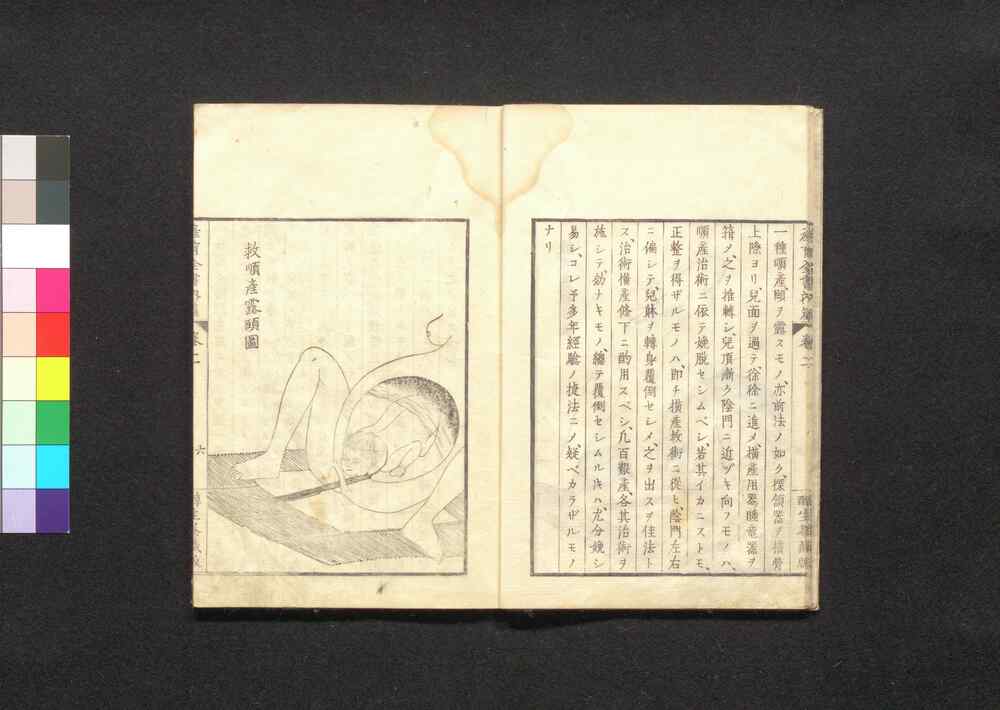 一種順産、頤ヲ露スモノ、亦前法ノ如ク、探頷器ヲ横骨
上際ヨリ、兒面ヲ過テ、徐徐ニ進メ、横産用
ヲ推轉シ、兒頂漸ク陰門ニ近ヅキ向フモノハ、
順産治術ニ依テ娩脱セシムベシ、若其イカニストモ、
正整ヲ得ザルモノハ、即チ横産救術ニ從ヒ、陰門左右
ニ偏シテ、兒躰ヲ轉身覆倒セシメ、之ヲ出スヲ佳法ト
ス、治術横産條下ニ酌用スベシ、凡百艱産、各其治術ヲ
施シテ、効ナキモノ、纔テ覆倒セシムルヰハ、尤分娩シ
易シ、コレ予多年經驗ノ捷法ニノ、疑ベカラザルモノ
ナリ
救順産露頤圖
六